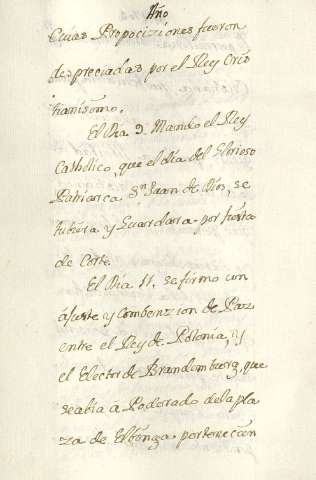 Año
Cuias Proposiziones fueron
despreciadas por el Rey Cris
tianisimo.
El Dia 9. Mando el Rey
Catholico, que el dia del Glorioso
Patriarca Sn. Juan de Dios, se
tubiera y Guardara por fiesta
de Corte.
El Dia 11. se firmo un
ajuste y Combenzion de Paz
entre el Rey de Polonia, y
el Elector de Brandemburg, que
se abia apoderado de la pla
za de Elbinga por tener en